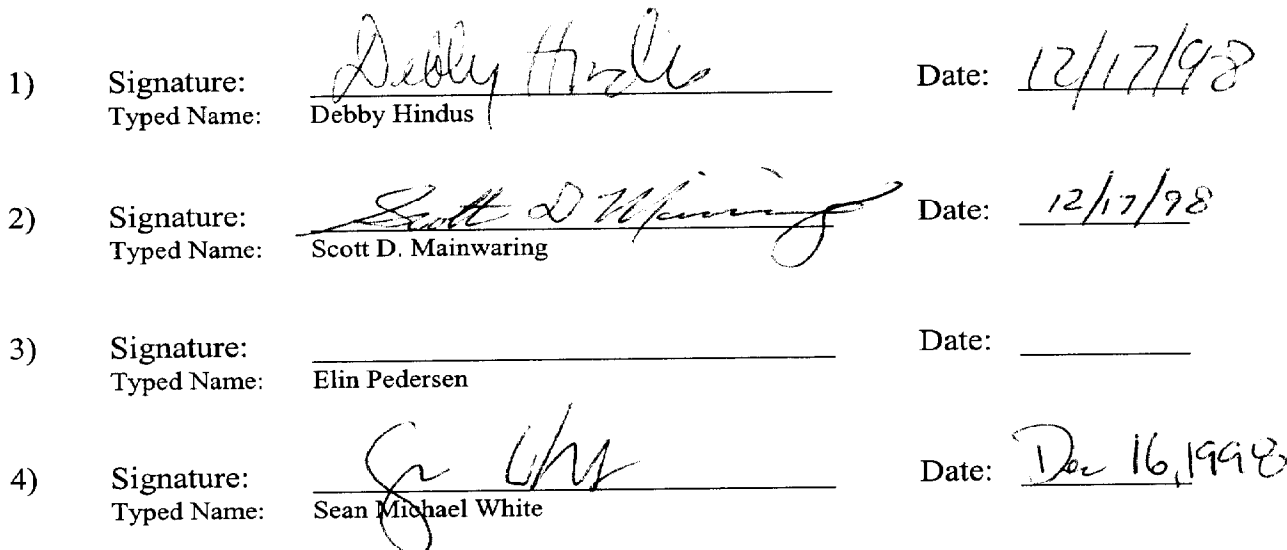 1) Signature: Debby Hindus Date: 12/17/98
Typed Name: Debby Hindus
2) Signature: Scott D Mainwaring Date: 12/17/98
Typed Name: Scott D. Mainwaring
3) Signature: Date:
Typed Name: Elin Pedersen
4) Signature: Sean White Date: Dec 16, 1998
Typed Name: Sean Michael White